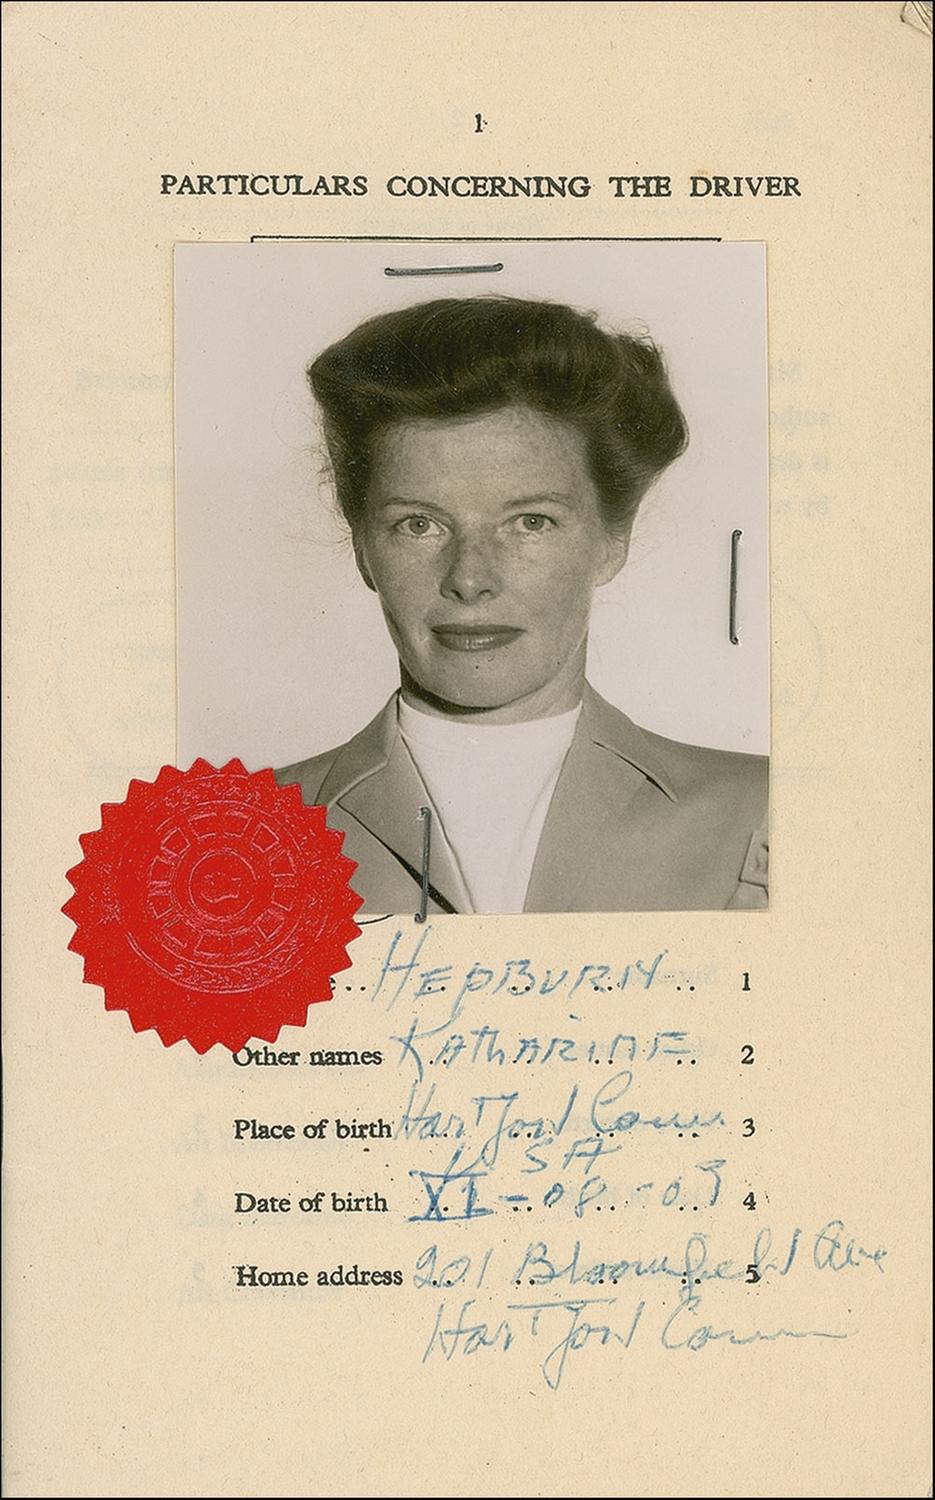 1
PARTICULARS CONCERNING THE DRIVER
HEPBURN 1
Other names KATHARINE 2
Place of birth Hartford Conn 3
USA
Date of birth XI - 08 - 09 4
Home address 201 Bloomfield Ave 5
Hartford Conn